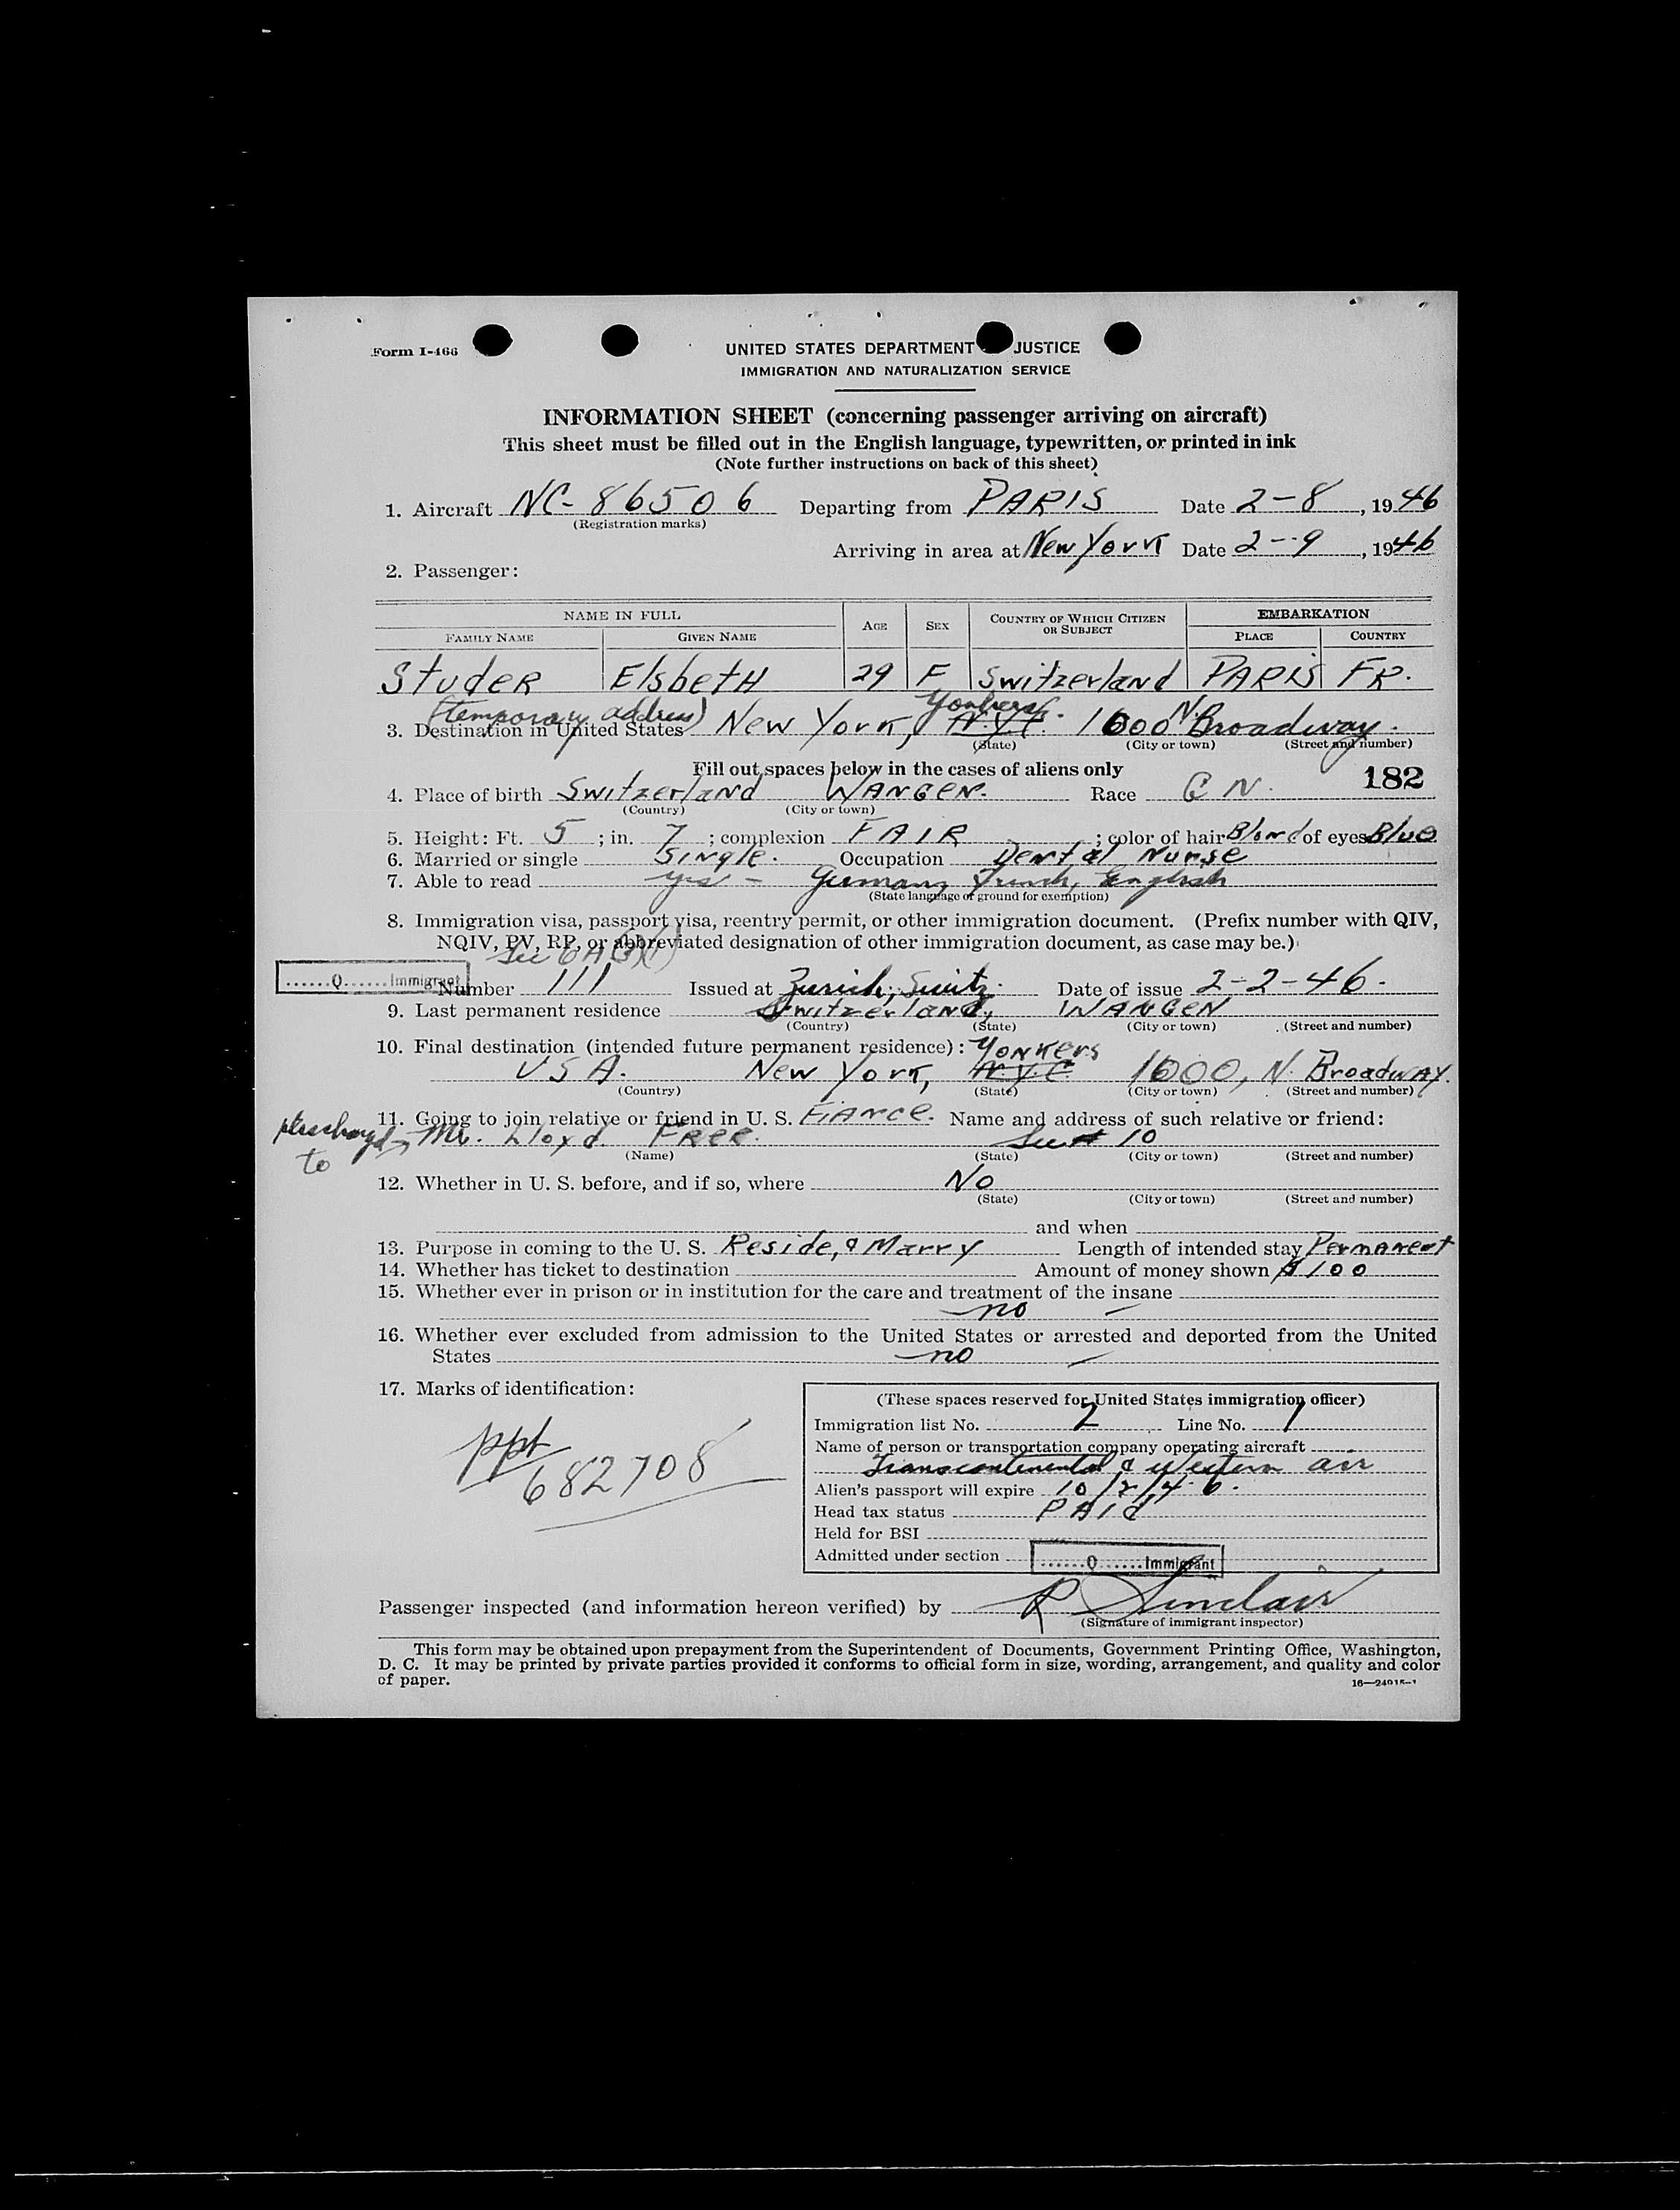 Form I-466
UNITED STATES DEPARTMENT JUSTICE
IMMIGRATION AND NATURALIZATION SERVICE
INFORMATION SHEET (concerning passenger arriving on aircraft)
This sheet must be filled out in the English language, typewritten, or printed in ink
(Note further instructions on back of this sheet)
1. Aircraft NC-86506 Departing from PARIS Date 2-8, 1946
(Registration marks)
Arriving in area at New York Date 2-9, 1946
2. Passenger:
NAME IN FULL AGE SEX COUNTRY OF WHICH CITIZEN OR SUBJECT EMBARKATION
FAMILY NAME GIVEN NAME PLACE COUNTRY
Studer Elsbeth 29 F Switzerland PARIS FR.
(temporary address) Yonkers
3. Destination in United States New York, N.Y.C. 1600 N Broadway.
(State) (City or town) (Street and number)
Fill out spaces below in the cases of aliens only
182
4. Place of birth Switzerland WANGEN. Race
(Country) (City or town)
5. Height: Ft. 5; in. 7; complexion FAIR; color of hair Blond of eyes Blue
6. Married or single Single. Occupation Dental Nurse
7. Able to read yes - German, French, English
(State language or ground for exemption)
8. Immigration visa, passport visa, reentry permit, or other immigration document. (Prefix number with QIV,
NQIV, PV, RP, or abbreviated designation of other immigration document, as case may be.)
See
......Q......Immigrant
Number 111 Issued at Zurich, Switz. Date of issue 2-2-46.
9. Last permanent residence Switzerland, WANGEN
(Country) (State) (City or town) (Street and number)
10. Final destination (intended future permanent residence): Yonkers
USA. New York, N.Y.C 1600, N. Broadway.
(Country) (State) (City or town) (Street and number)
11. Going to join relative or friend in U. S. Fiance. Name and address of such relative or friend:
to Mr. Lloyd Free. See # 10
(Name) (State) (City or town) (Street and number)
12. Whether in U. S. before, and if so, where No
(State) (City or town) (Street and number)
and when
13. Purpose in coming to the U. S. Reside, & Marry Length of intended stay Permanent
14. Whether has ticket to destination Amount of money shown $100
15. Whether ever in prison or in institution for the care and treatment of the insane
no -
16. Whether ever excluded from admission to the United States or arrested and deported from the United
States no -
17. Marks of identification:
ppt
682708
(These spaces reserved for United States immigration officer)
Immigration list No. 2 Line No. 1
Name of person or transportation company operating aircraft
Transcontinental & Western air
Alien's passport will expire 10/2/46.
Head tax status PAId
Held for BSI
Admitted under section ......Q......Immigrant
Passenger inspected (and information hereon verified) by R Sinclair
(Signature of immigrant inspector)
This form may be obtained upon prepayment from the Superintendent of Documents, Government Printing Office, Washington,
D. C. It may be printed by private parties provided it conforms to official form in size, wording, arrangement, and quality and color
of paper.